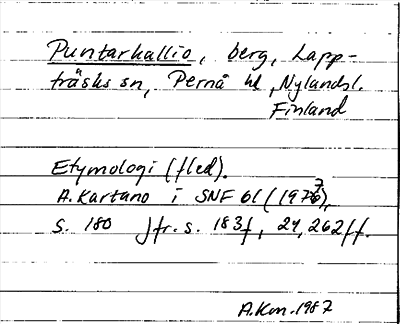 Puntarkallio, berg, Lapp-
träsks sn, Pernå hd, Nylandsl.
Finland
Etymologi (fled).
A. Kartano i SNF 61 (1977),
s. 180 jfr. s. 183f, 24, 262ff.
A.Km. 1987